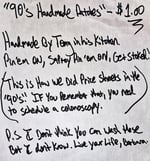 "90's" Handmade Patches" - $1.00
Handmade By Tom in his Kitchen
Pin'em ON, Safety Pin 'em ON, Get Stoked!
This is How we Did Price Stickers in the
"90's". If You Remember that, you need
to schedule a colonoscopy.
P.S. I Don't think You Can Wash these
But I don't know. Live your Life, Barbara.